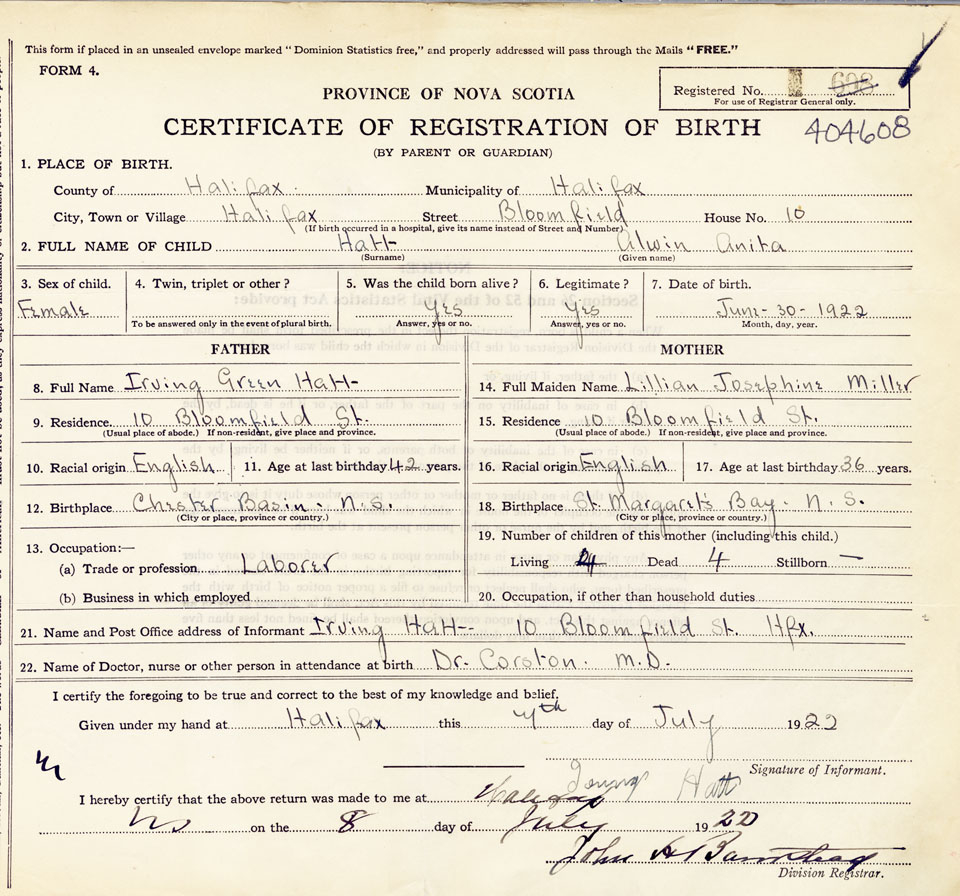 This form if placed in an unsealed envelope marked "Dominion Statistics free," and properly addressed will pass through the Mails "FREE."
FORM 4.
Registered No. 608
For use of Registrar General only.
PROVINCE OF NOVA SCOTIA
CERTIFICATE OF REGISTRATION OF BIRTH 404608
(BY PARENT OR GUARDIAN)
1. PLACE OF BIRTH.
County of Halifax. Municipality of Halifax
City, Town or Village Halifax Street Bloomfield House No. 10
(If birth occurred in a hospital, give its name instead of Street and Number)
2. FULL NAME OF CHILD Hatt Alwin Anita
(Surname) (Given name)
3. Sex of child. 4. Twin, triplet or other? 5. Was the child born alive? 6. Legitimate? 7. Date of birth.
Female Yes Yes June-30-1922
To be answered only in the event of plural birth. Answer, yes or no. Answer, yes or no. Month, day, year.
FATHER MOTHER
8. Full Name Irving Green Hatt 14. Full Maiden Name Lillian Josephine Miller
9. Residence. 10 Bloomfield St. 15. Residence 10 Bloomfield St.
(Usual place of abode.) If non-resident, give place and province. (Usual place of abode.) If non-resident, give place and province.
10. Racial origin English 11. Age at last birthday 42 years. 16. Racial origin English 17. Age at last birthday 36 years.
12. Birthplace Chester Basin. N.S. 18. Birthplace St. Margaret's Bay. N.S.
(City or place, province or country.) (City or place, province or country.)
13. Occupation:— 19. Number of children of this mother (including this child.)
(a) Trade or profession Laborer Living 4 Dead 4 Stillborn —
(b) Business in which employed 20. Occupation, if other than household duties
21. Name and Post Office address of Informant Irving Hatt- 10 Bloomfield St. Hfx.
22. Name of Doctor, nurse or other person in attendance at birth Dr. Corston. M.D.
I certify the foregoing to be true and correct to the best of my knowledge and belief.
Given under my hand at Halifax this 7th day of July 1922
Irving Hatt
Signature of Informant.
I hereby certify that the above return was made to me at Halifax
NS on the 8 day of July 1922
John A Barnstead
Division Registrar.